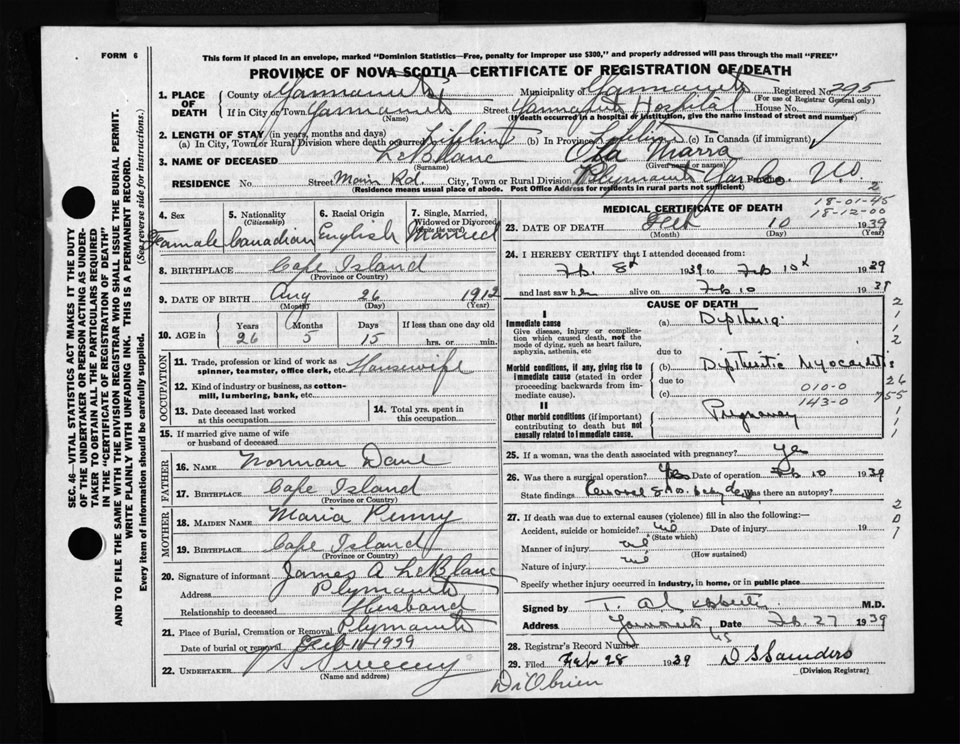 FORM 6
This form if placed in an envelope, marked "Dominion Statistics—Free, penalty for improper use $300," and properly addressed will pass through the mail "FREE"
PROVINCE OF NOVA SCOTIA—CERTIFICATE OF REGISTRATION OF DEATH
1. PLACE OF DEATH County of Yarmouth Municipality of Yarmouth Registered No. 295
(For use of Registrar General only)
If in City or Town Yarmouth Street Yarmouth Hospital House No.
(Name) (If death occurred in a hospital or institution, give the name instead of street and number)
2. LENGTH OF STAY (in years, months and days)
(a) In City, Town or Rural Division where death occurred Lifetime (b) In Province Lifetime (c) In Canada (if immigrant)
3. NAME OF DECEASED LeBlanc Ola Marra
(Surname) (Given name or names)
RESIDENCE No. Street Main Rd. City, Town or Rural Division Plymouth Yar Co. Province N.S.
(Residence means usual place of abode. Post Office Address for residents in rural parts not sufficient)
2
18-01-45
18-12-00
4. Sex Female
5. Nationality (Citizenship) Canadian
6. Racial Origin English
7. Single, Married, Widowed or Divorced (write the word) Married
8. BIRTHPLACE Cape Island
(Province or Country)
9. DATE OF BIRTH Aug 26 1912
(Month) (Day) (Year)
10. AGE in Years 26 Months 5 Days 15 If less than one day old
hrs. or min.
OCCUPATION
11. Trade, profession or kind of work as spinner, teamster, office clerk, etc. Housewife
12. Kind of industry or business, as cotton-mill, lumbering, bank, etc.
13. Date deceased last worked at this occupation
14. Total yrs. spent in this occupation
15. If married give name of wife or husband of deceased
FATHER
16. NAME Norman
17. BIRTHPLACE Cape Island
(Province or Country)
MOTHER
18. MAIDEN NAME Maria Penny
19. BIRTHPLACE Cape Island
(Province or Country)
20. Signature of informant James A LeBlanc
Address Plymouth
Relationship to deceased Husband
21. Place of Burial, Cremation or Removal Plymouth
Date of burial or removal Feb 11 1939
22. UNDERTAKER Sweeny
(Name and address)
MEDICAL CERTIFICATE OF DEATH
23. DATE OF DEATH Feb 10 1939
(Month) (Day) (Year)
24. I HEREBY CERTIFY that I attended deceased from:
Feb. 8th 1939 to Feb 10th 1939
and last saw her alive on Feb 10 1939
CAUSE OF DEATH
I
Immediate cause
Give disease, injury or complication which caused death, not the mode of dying, such as heart failure, asphyxia, asthenia, etc
(a)
due to
Morbid conditions, if any, giving rise to immediate cause (stated in order proceeding backwards from immediate cause).
(b) Myocarditis
due to 010-0
(c) 143-0
II
Other morbid conditions (if important) contributing to death but not causally related to immediate cause.
Pregnancy
25. If a woman, was the death associated with pregnancy? Yes
26. Was there a surgical operation? Yes Date of operation Feb 10 1939
State findings Was there an autopsy?
27. If death was due to external causes (violence) fill in also the following:—
Accident, suicide or homicide? nil Date of injury 19
(State which)
Manner of injury nil
(How sustained)
Nature of injury nil
Specify whether injury occurred in industry, in home, or in public place
Signed by T. M.D.
Address Yarmouth Date Feb. 27 1939
28. Registrar's Record Number 45
29. Filed Feb 28 1939 D S Saunders
(Division Registrar)
Dr O'Brien
SEC. 46—VITAL STATISTICS ACT MAKES IT THE DUTY OF THE UNDERTAKER OR PERSON ACTING AS UNDERTAKER TO OBTAIN ALL THE PARTICULARS REQUIRED IN THE "CERTIFICATE OF REGISTRATION OF DEATH"
AND TO FILE THE SAME WITH THE DIVISION REGISTRAR WHO SHALL ISSUE THE BURIAL PERMIT.
WRITE PLAINLY WITH UNFADING INK. THIS IS A PERMANENT RECORD.
Every item of information should be carefully supplied. (See reverse side for instructions.)